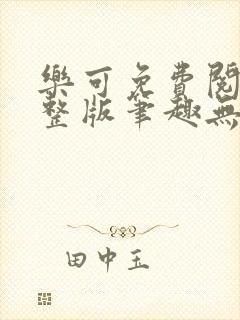 樂可免費閱
整版筆趣無
田中玉